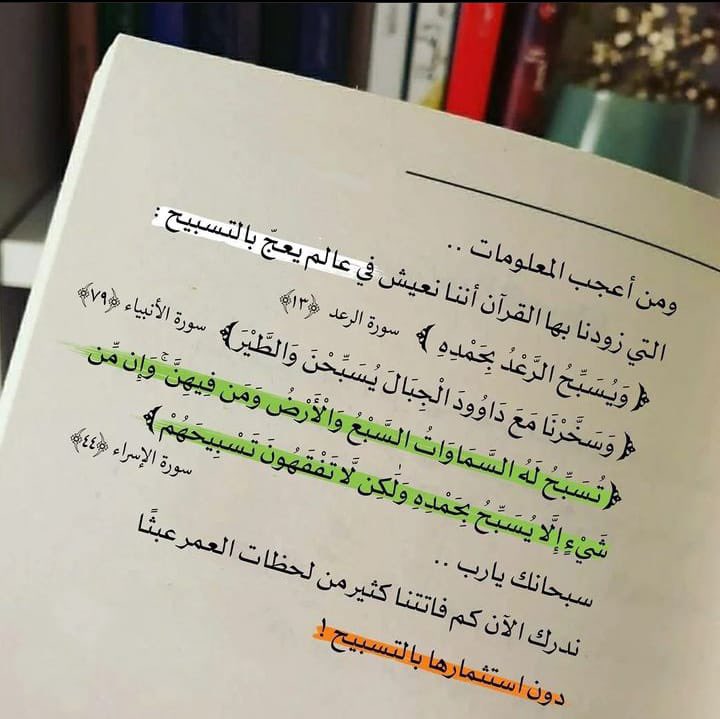 ومن أعجب المعلومات ..
التي زودنا بها القرآن أننا نعيش في عالم يعجّ بالتسبيح :
﴿ وَيُسَبِّحُ الرَّعْدُ بِحَمْدِهِ ﴾ سورة الرعد ﴿١٣﴾
﴿ وَسَخَّرْنَا مَعَ دَاوُودَ الْجِبَالَ يُسَبِّحْنَ وَالطَّيْرَ﴾ سورة الأنبياء ﴿٧٩﴾
﴿ تُسَبِّحُ لَهُ السَّمَاوَاتُ السَّبْعُ وَالْأَرْضُ وَمَن فِيهِنَّ ۚ وَإِن مِّن
شَيْءٍ إِلَّا يُسَبِّحُ بِحَمْدِهِ وَلَٰكِن لَّا تَفْقَهُونَ تَسْبِيحَهُمْ ﴾
سورة الإسراء ﴿٤٤﴾
سبحانك يارب ..
ندرك الآن كم فاتتنا كثير من لحظات العمر عبثًا
دون استثمارها بالتسبيح !